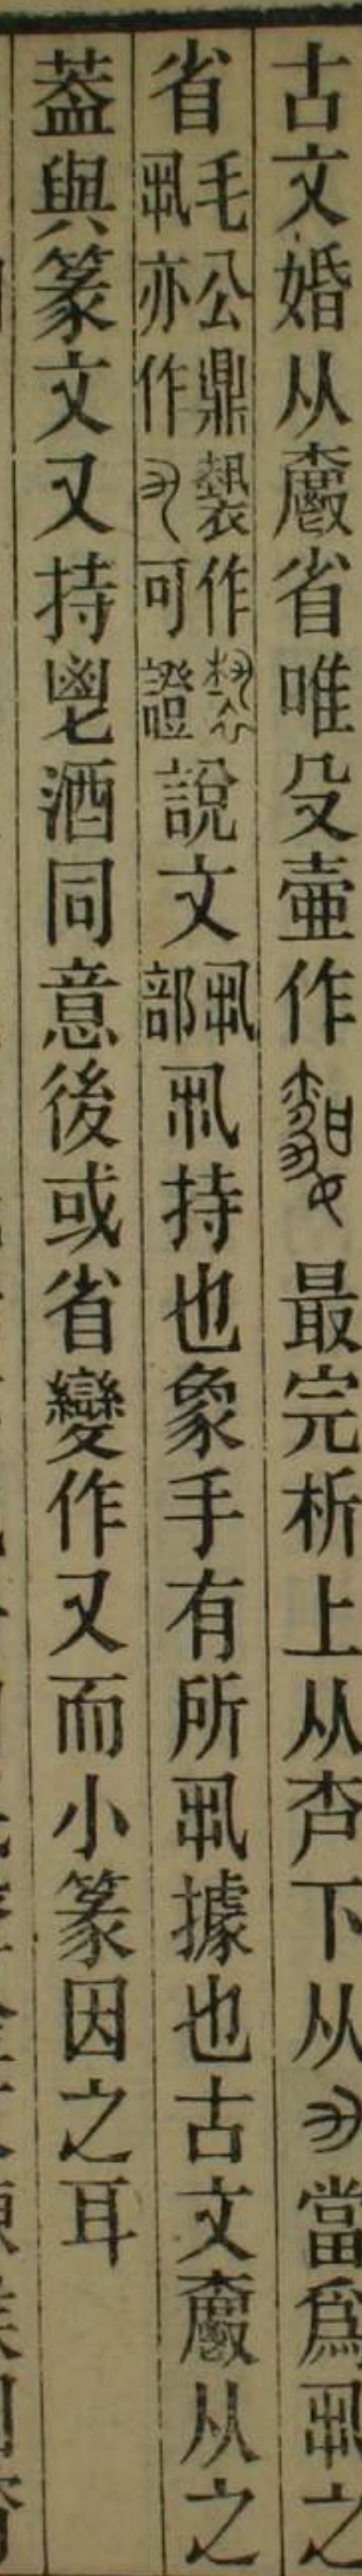 古文婚从𡕩省唯殳壷作最完析上从𣥂下从當爲𠃨之
省毛公鼎褺作𠃨亦作可證說文𠃨部𠃨持也象手有所𠃨據也古文从之
葢與篆文又持鬯酒同意後或省變作又而小篆因之耳